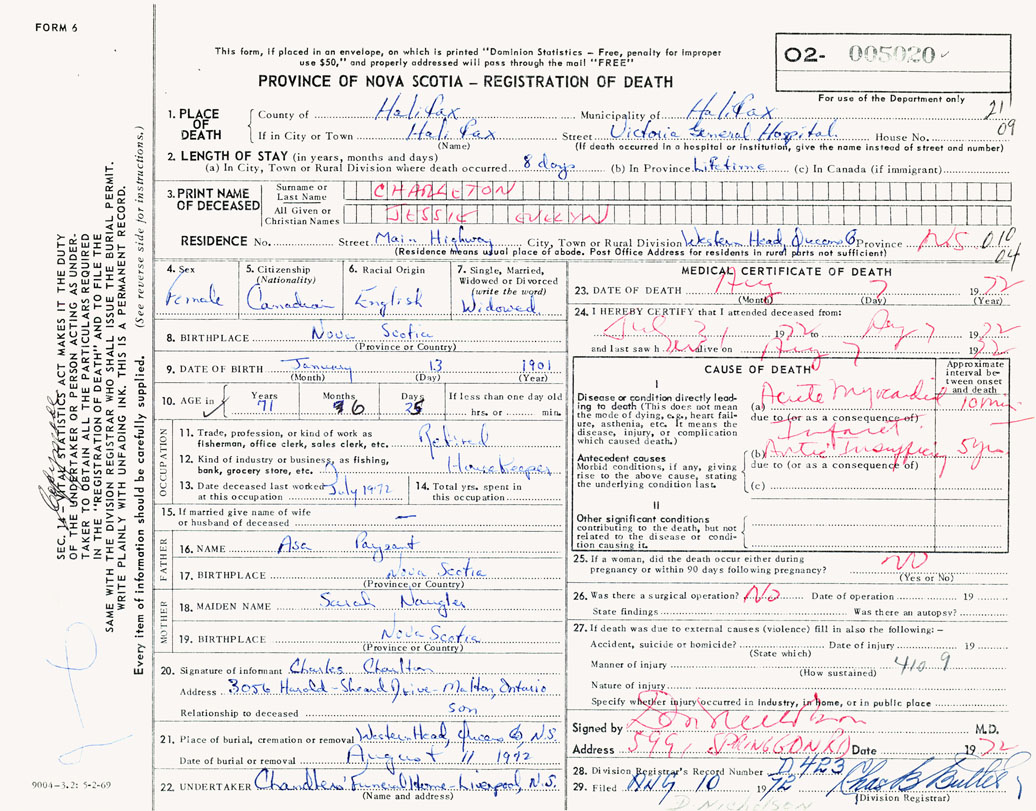 FORM 6
This form, if placed in an envelope, on which is printed "Dominion Statistics – Free, penalty for improper
use $50," and properly addressed will pass through the mail "FREE"
O2- 005020
PROVINCE OF NOVA SCOTIA – REGISTRATION OF DEATH
For use of the Department only
1. PLACE OF DEATH
County of Halifax Municipality of Halifax 21
If in City or Town Halifax Street Victoria General Hospital House No. 09
(Name) (If death occurred in a hospital or institution, give the name instead of street and number)
2. LENGTH OF STAY (in years, months and days)
(a) In City, Town or Rural Division where death occurred 8 days (b) In Province Lifetime (c) In Canada (if immigrant)
3. PRINT NAME OF DECEASED
Surname or Last Name CHARLETON
All Given or Christian Names JESSIE EVELYN
RESIDENCE No. Street Main Highway City, Town or Rural Division Western Head, Queens Co Province N.S. 010
(Residence means usual place of abode. Post Office Address for residents in rural parts not sufficient) 04
4. Sex Female
5. Citizenship (Nationality) Canadian
6. Racial Origin English
7. Single, Married, Widowed or Divorced (write the word) Widowed
8. BIRTHPLACE Nova Scotia
(Province or Country)
9. DATE OF BIRTH January 13 1901
(Month) (Day) (Year)
10. AGE in Years Months Days If less than one day old
71 6 hrs. or min.
OCCUPATION
11. Trade, profession, or kind of work as
fisherman, office clerk, sales clerk, etc. Retired
12. Kind of industry or business, as fishing,
bank, grocery store, etc. Housekeeper
13. Date deceased last worked
at this occupation July 1972
14. Total yrs. spent in
this occupation
15. If married give name of wife
or husband of deceased —
FATHER
16. NAME Asa Paysant
17. BIRTHPLACE Nova Scotia
(Province or Country)
MOTHER
18. MAIDEN NAME Sarah Naugler
19. BIRTHPLACE Nova Scotia
(Province or Country)
20. Signature of informant Charles Charlton
Address 3056 Harold-Sheard Drive - Malton, Ontario
Relationship to deceased son
21. Place of burial, cremation or removal Western Head, Queens Co N.S.
Date of burial or removal August 11 1972
22. UNDERTAKER Chandlers' Funeral Home - Liverpool, N.S.
(Name and address)
MEDICAL CERTIFICATE OF DEATH
23. DATE OF DEATH Aug 7 1972
(Month) (Day) (Year)
24. I HEREBY CERTIFY that I attended deceased from:
July 31 1972 to Aug 7 1972
and last saw h alive on Aug 7 1972
CAUSE OF DEATH
Approximate interval between onset and death
I
Disease or condition directly leading
to death (This does not mean
the mode of dying, e.g., heart failure,
asthenia, etc. It means the
disease, injury, or complication
which caused death.)
(a) Acute Myocardial 10 min
due to (or as a consequence of)
Infarct
Antecedent causes
Morbid conditions, if any, giving
rise to the above cause, stating
the underlying condition last.
(b) Aortic Insufficiency 5 yrs
due to (or as a consequence of)
(c)
II
Other significant conditions
contributing to the death, but not
related to the disease or condition
causing it.
25. If a woman, did the death occur either during
pregnancy or within 90 days following pregnancy? NO
(Yes or No)
26. Was there a surgical operation? No Date of operation 19
State findings Was there an autopsy?
27. If death was due to external causes (violence) fill in also the following: –
Accident, suicide or homicide? Date of injury 19
(State which)
Manner of injury 410.9
(How sustained)
Nature of injury
Specify whether injury occurred in industry, in home, or in public place
Signed by M.D.
Address 5991 SPRING GDN RD Date 1972
28. Division Registrar's Record Number D.423
29. Filed AUG 10 1972 Chas B Butler
(Division Registrar)
D. NICHOLSON
SEC. 16 – VITAL STATISTICS ACT MAKES IT THE DUTY
OF THE UNDERTAKER OR PERSON ACTING AS UNDER-
TAKER TO OBTAIN ALL THE PARTICULARS REQUIRED
IN THE "REGISTRATION OF DEATH" AND TO FILE THE
SAME WITH THE DIVISION REGISTRAR WHO SHALL ISSUE THE BURIAL PERMIT.
WRITE PLAINLY WITH UNFADING INK. THIS IS A PERMANENT RECORD.
Every item of information should be carefully supplied. (See reverse side for instructions.)
9004-3.2: 5-2-69